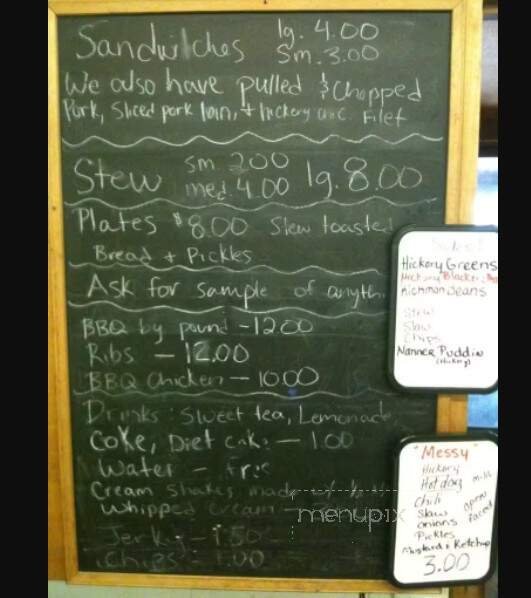 Sandwiches lg. 4.00
Sm. 3.00
We also have pulled & Chopped
Pork, Sliced pork loin, + hickory chic. Filet
Stew sm 2.00 lg. 8.00
med 4.00
Plates $8.00 Slew toasted
Bread + Pickles
Ask for sample of anythi
BBQ by pound - 12.00
Ribs - 12.00
BBQ Chicken - 10.00
Drinks: Sweet tea, Lemonade
Coke, Diet Coke - 1.00
Water - free
Cream Shakes made w/
Whipped Cream -
Jerky - 1.50
Chips 1.00
Hickory Greens
Hickory Black
Beans
Stew
Slaw
Chips
Nanner Puddin
(Hickory)
"Messy"
Hickory
Hot dog
Chili
Slaw open
onions faced
Pickles
Mustard & Ketchup
3.00
menupix